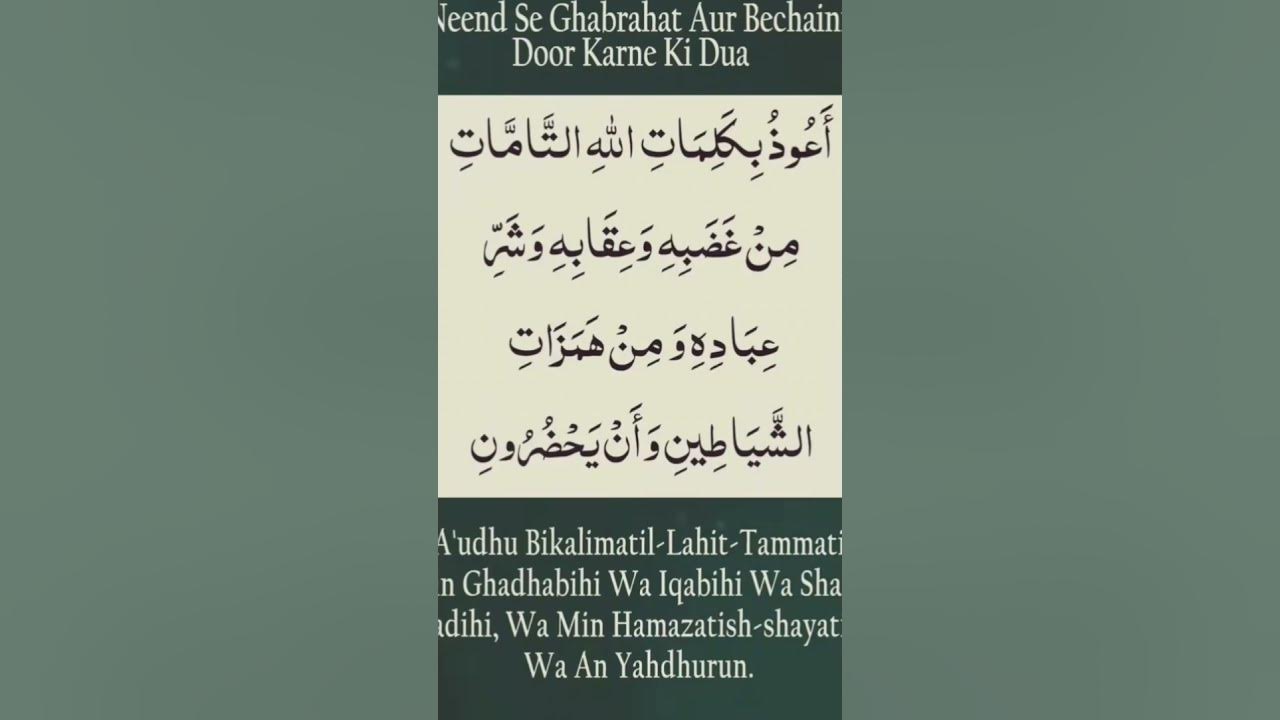 Neend Se Ghabrahat Aur Bechaini
Door Karne Ki Dua
أَعُوذُ بِكَلِمَاتِ اللهِ التَّامَّاتِ
مِنْ غَضَبِهِ وَعِقَابِهِ وَشَرِّ
عِبَادِهِ وَ مِنْ هَمَزَاتِ
الشَّيَاطِينِ وَأَنْ يَحْضُرُونِ
A'udhu Bikalimatil-Lahit-Tammati
n Ghadhabihi Wa Iqabihi Wa Sha
adihi, Wa Min Hamazatish-shayati
Wa An Yahdhurun.